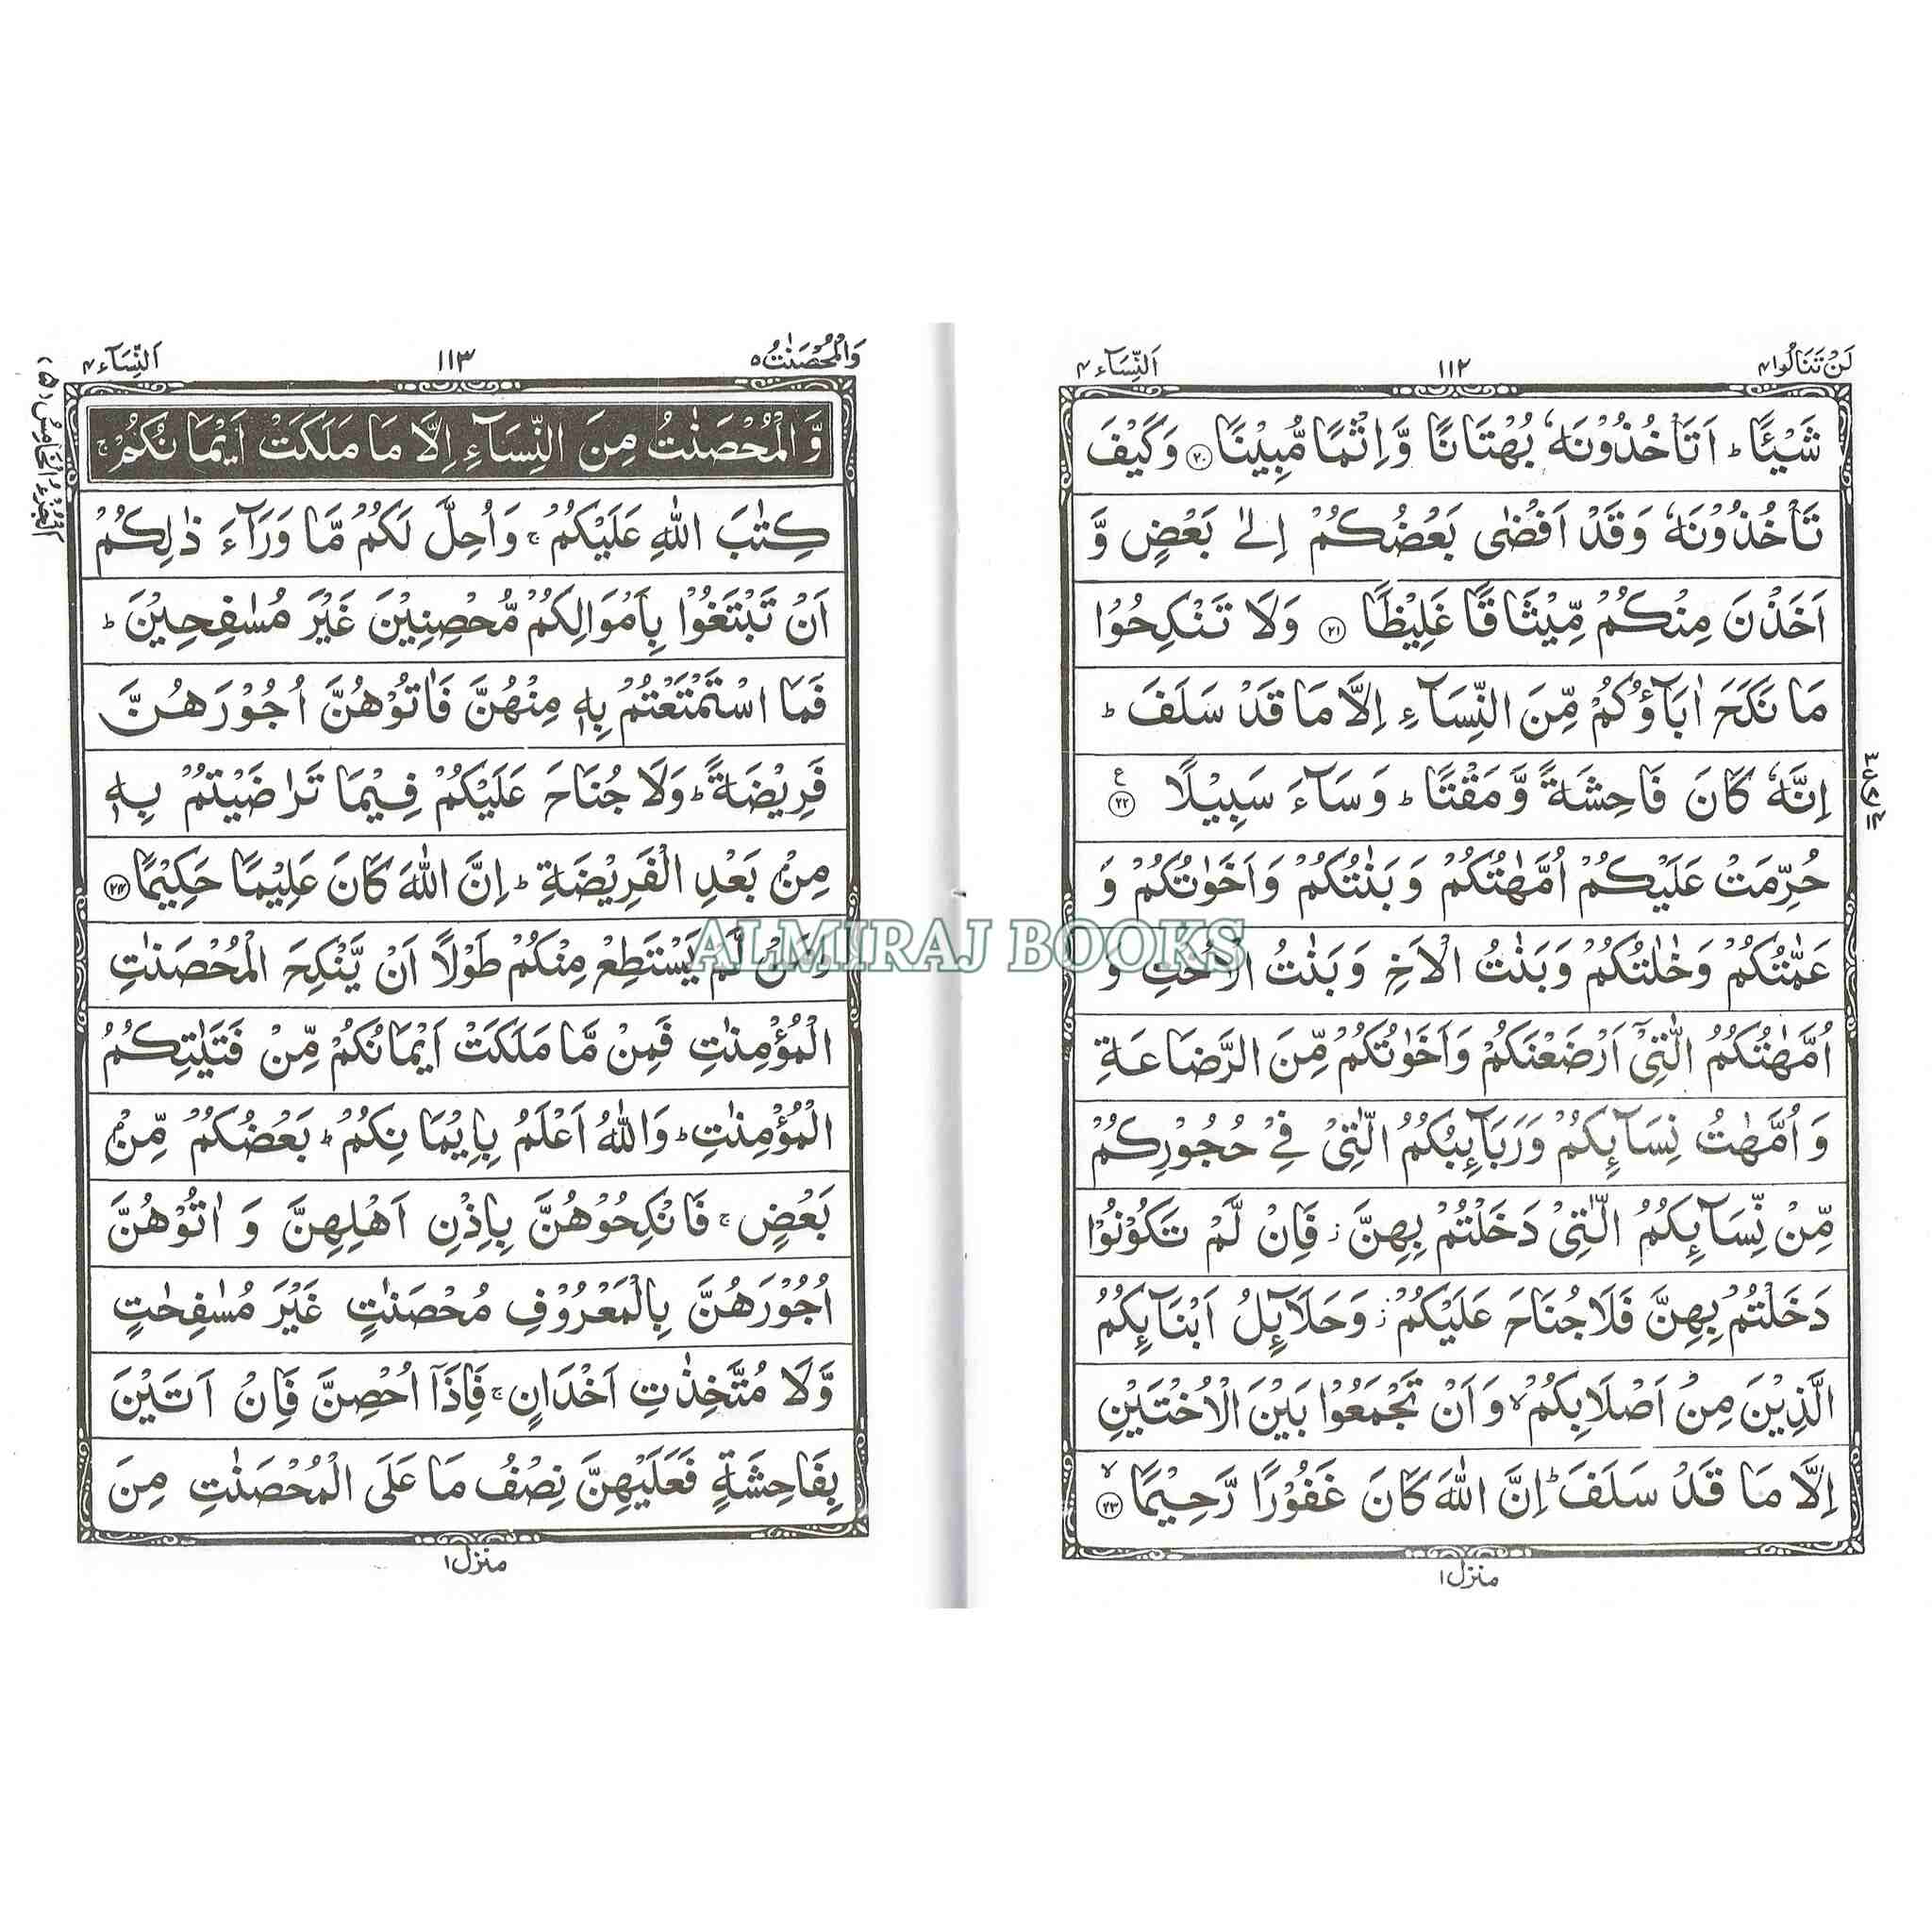 لَنْ تَنَالُوا ۴
۱۱۲
اَلنِّسَآء ۴
شَيْـًٔا ؕ اَتَاْخُذُوْنَهٗ بُهْتَانًا وَّاِثْمًا مُّبِيْنًا ﴿۲۰﴾ وَكَيْفَ
تَاْخُذُوْنَهٗ وَقَدْ اَفْضٰى بَعْضُكُمْ اِلٰى بَعْضٍ وَّ
اَخَذْنَ مِنْكُمْ مِّيْثَاقًا غَلِيْظًا ﴿۲۱﴾ وَلَا تَنْكِحُوْا
مَا نَكَحَ اٰبَآؤُكُمْ مِّنَ النِّسَآءِ اِلَّا مَا قَدْ سَلَفَ ؕ
اِنَّهٗ كَانَ فَاحِشَةً وَّمَقْتًا ؕ وَسَآءَ سَبِيْلًا ﴿۲۲﴾ ع
حُرِّمَتْ عَلَيْكُمْ اُمَّهٰتُكُمْ وَبَنٰتُكُمْ وَاَخَوٰتُكُمْ وَ
عَمّٰتُكُمْ وَخٰلٰتُكُمْ وَبَنٰتُ الْاَخِ وَبَنٰتُ الْاُخْتِ وَ
اُمَّهٰتُكُمُ الّٰتِيْۤ اَرْضَعْنَكُمْ وَاَخَوٰتُكُمْ مِّنَ الرَّضَاعَةِ
وَاُمَّهٰتُ نِسَآئِكُمْ وَرَبَآئِبُكُمُ الّٰتِيْ فِيْ حُجُوْرِكُمْ
مِّنْ نِّسَآئِكُمُ الّٰتِيْ دَخَلْتُمْ بِهِنَّ ز فَاِنْ لَّمْ تَكُوْنُوْا
دَخَلْتُمْ بِهِنَّ فَلَا جُنَاحَ عَلَيْكُمْ ز وَحَلَآئِلُ اَبْنَآئِكُمُ
الَّذِيْنَ مِنْ اَصْلَابِكُمْ ۙ وَاَنْ تَجْمَعُوْا بَيْنَ الْاُخْتَيْنِ
اِلَّا مَا قَدْ سَلَفَ ؕ اِنَّ اللّٰهَ كَانَ غَفُوْرًا رَّحِيْمًا ﴿۲۳﴾ ۙ
منزل ۱
وَالْمُحْصَنٰتُ ۵
۱۱۳
اَلنِّسَآء ۴
وَّالْمُحْصَنٰتُ مِنَ النِّسَآءِ اِلَّا مَا مَلَكَتْ اَيْمَانُكُمْ ۚ
كِتٰبَ اللّٰهِ عَلَيْكُمْ ۚ وَاُحِلَّ لَكُمْ مَّا وَرَآءَ ذٰلِكُمْ
اَنْ تَبْتَغُوْا بِاَمْوَالِكُمْ مُّحْصِنِيْنَ غَيْرَ مُسٰفِحِيْنَ ؕ
فَمَا اسْتَمْتَعْتُمْ بِهٖ مِنْهُنَّ فَاٰتُوْهُنَّ اُجُوْرَهُنَّ
فَرِيْضَةً ؕ وَلَا جُنَاحَ عَلَيْكُمْ فِيْمَا تَرٰضَيْتُمْ بِهٖ
مِنْۢ بَعْدِ الْفَرِيْضَةِ ؕ اِنَّ اللّٰهَ كَانَ عَلِيْمًا حَكِيْمًا ﴿۲۴﴾
وَمَنْ لَّمْ يَسْتَطِعْ مِنْكُمْ طَوْلًا اَنْ يَّنْكِحَ الْمُحْصَنٰتِ
الْمُؤْمِنٰتِ فَمِنْ مَّا مَلَكَتْ اَيْمَانُكُمْ مِّنْ فَتَيٰتِكُمُ
الْمُؤْمِنٰتِ ؕ وَاللّٰهُ اَعْلَمُ بِاِيْمَانِكُمْ ؕ بَعْضُكُمْ مِّنْۢ
بَعْضٍ ۚ فَانْكِحُوْهُنَّ بِاِذْنِ اَهْلِهِنَّ وَاٰتُوْهُنَّ
اُجُوْرَهُنَّ بِالْمَعْرُوْفِ مُحْصَنٰتٍ غَيْرَ مُسٰفِحٰتٍ
وَّلَا مُتَّخِذٰتِ اَخْدَانٍ ۚ فَاِذَاۤ اُحْصِنَّ فَاِنْ اَتَيْنَ
بِفَاحِشَةٍ فَعَلَيْهِنَّ نِصْفُ مَا عَلَى الْمُحْصَنٰتِ مِنَ
منزل ۱
اَلْجُزْءُ الْخَامِسُ (۵)
ALMIRAJ BOOKS